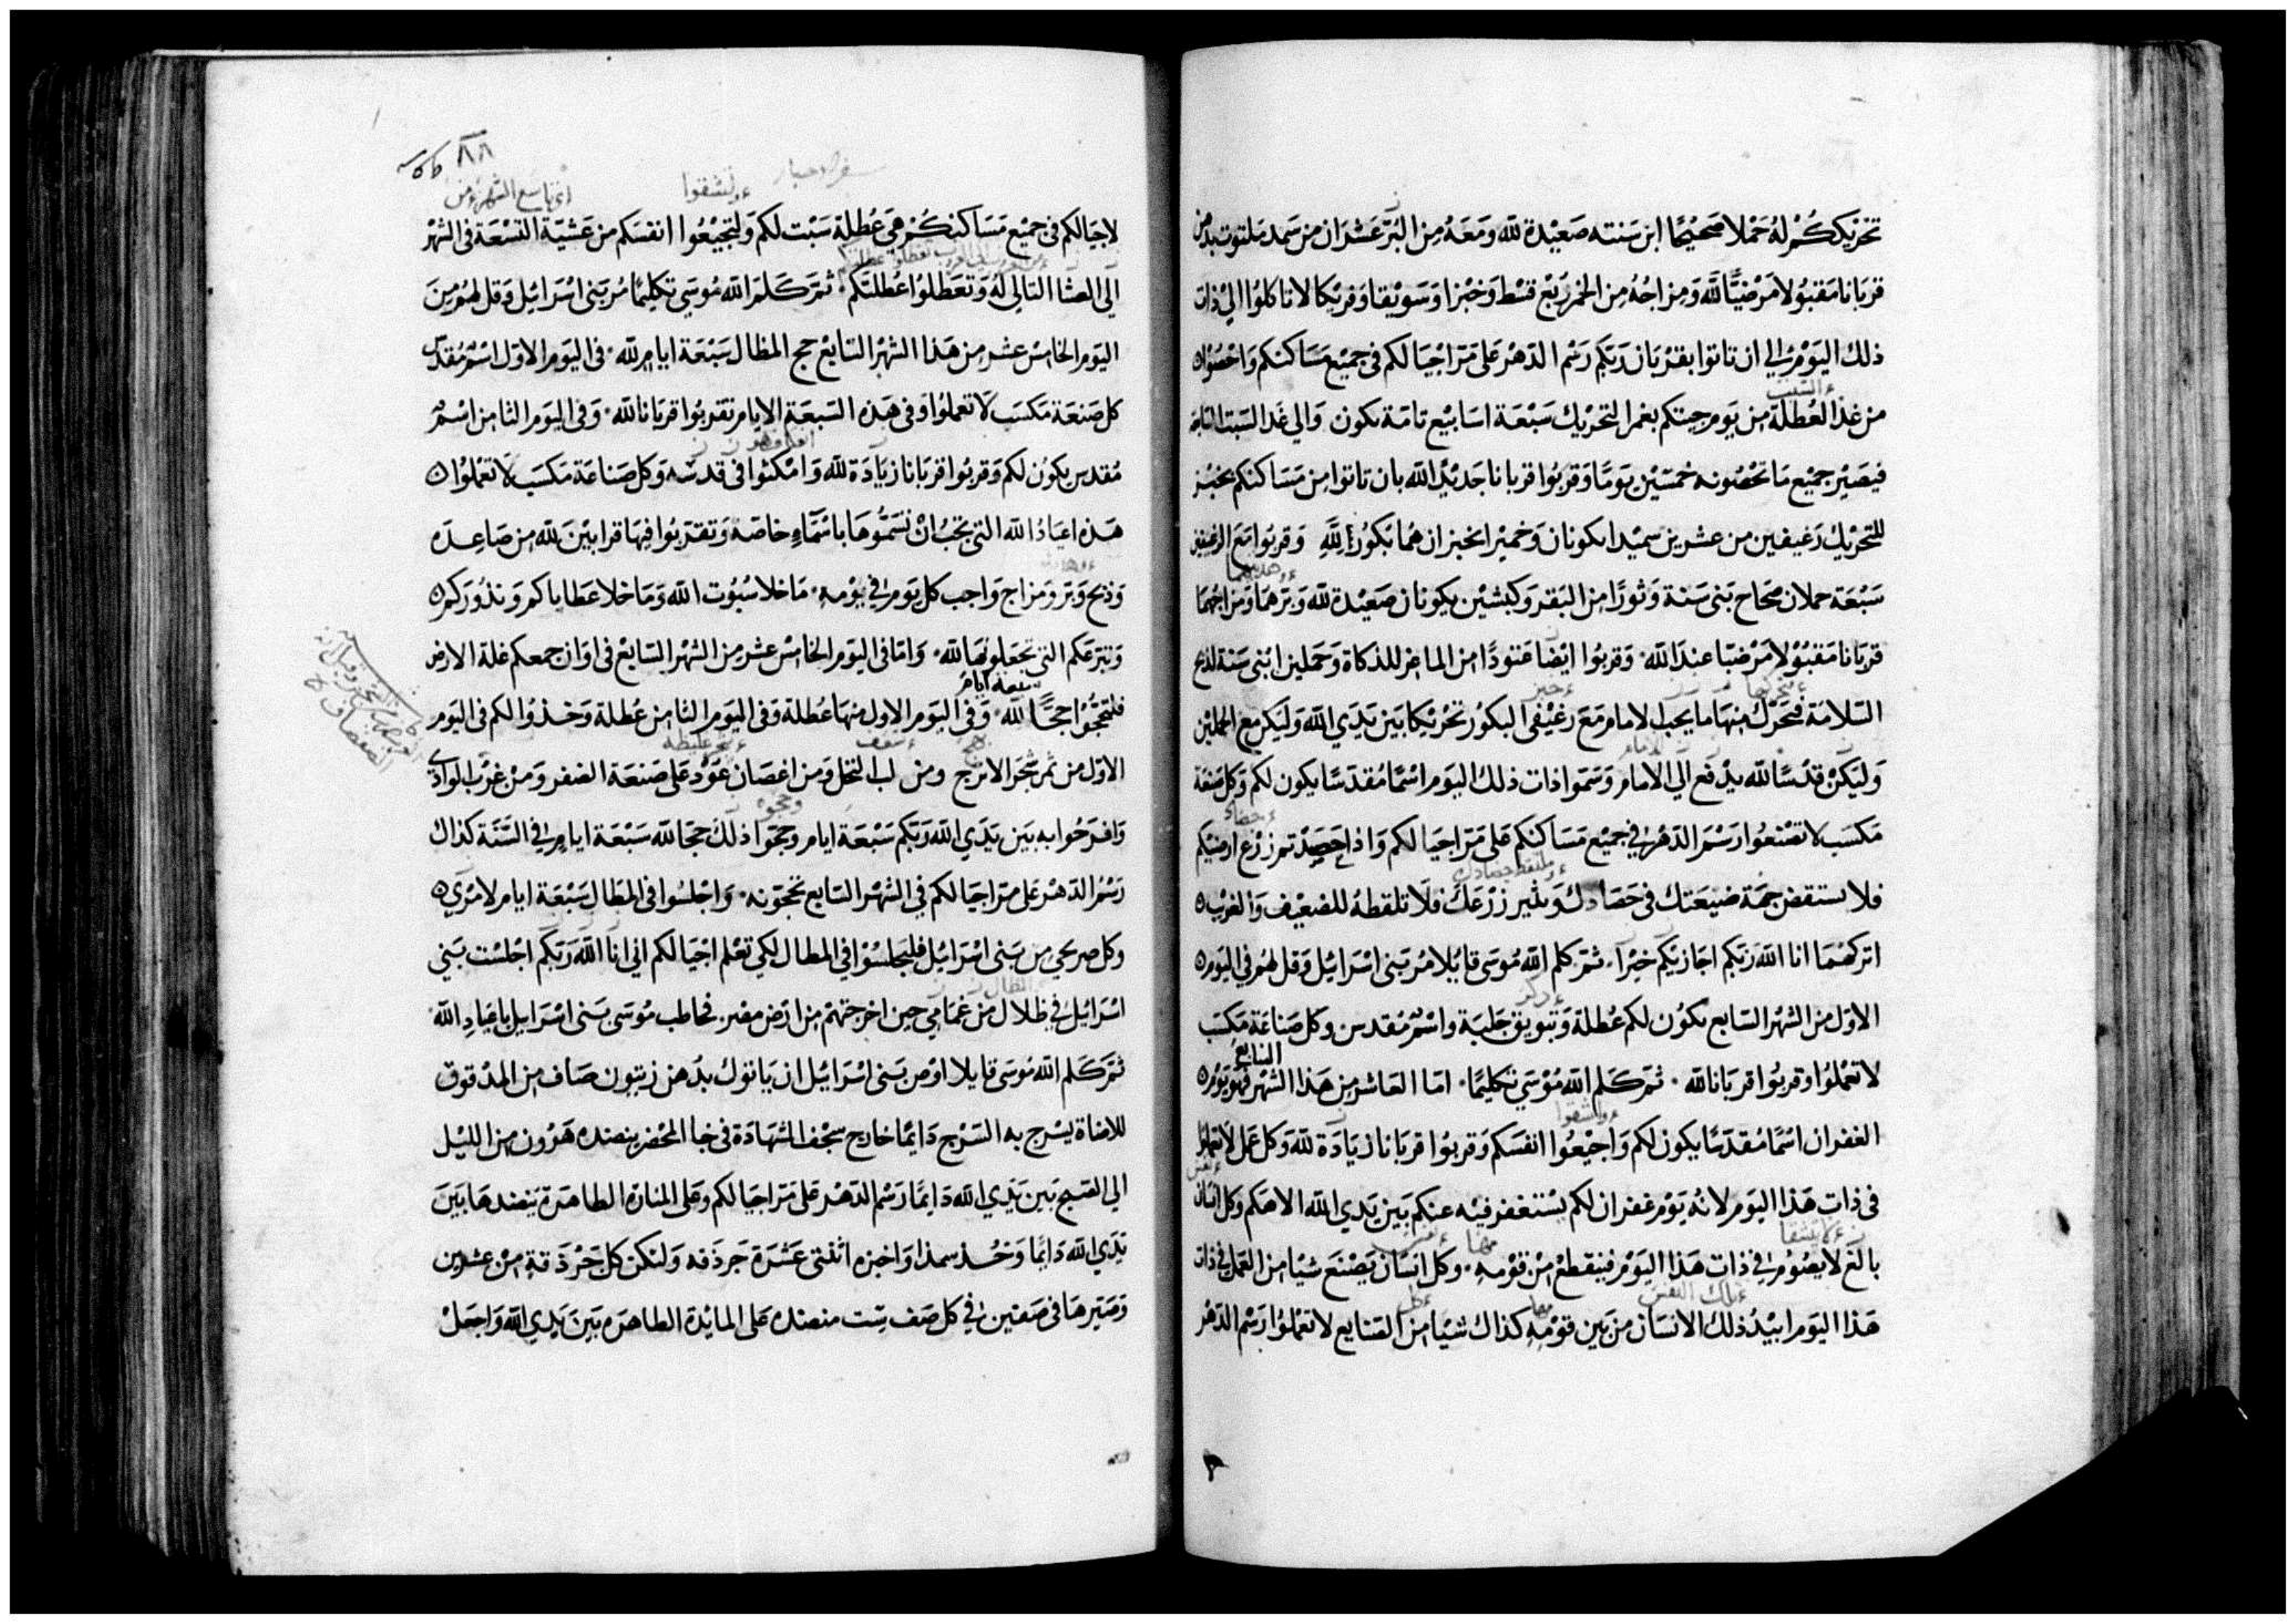 تحريككم له حملا صحيحا ابن سنته صعيدة لله ومعه من البر عشران من سمد ملتوت بدهن
قربانا مقبولا مرضيا لله ومزاجه من الخمر ربع قسط وخبزا وسويقا وفريكا لا تاكلوا الي ذات
ذلك اليوم الي ان تاتوا بقربان ربكم رسم الدهر على مر اجيالكم في جميع مساكنكم واحصوا
من غد العطلة من يوم جيتكم بغمر التحريك سبعة اسابيع تامة تكون والي غد السبت السابع
فيصير جميع ما تحصونه خمسين يوما وقربوا قربانا جديدا لله بان تاتوا من مساكنكم بخبز
للتحريك رغيفين من عشرين سميدا يكونان وخميرا يخبزان هما بكورا لله وقربوا مع الرغيفين
سبعة حملان صحاح بني سنة وثورا من البقر وكبشين يكونان صعيدة لله وبرهما ومزاجهما
قربانا مقبولا مرضيا عند الله وقربوا ايضا عتودا من الماعز للذكاة وحملين ابني سنة لذبح
السلامة فتحرك منها ما يجب لامام مع رغيفي البكور تحريكا بين يدي الله وليكن مع الحملين
وليكن قدسا لله يدفع الي الامام وسموا ذات ذلك اليوم اسما مقدسا يكون لكم وكل صنعة
مكسب لا تصنعوا رسم الدهر في جميع مساكنكم على مر اجيالكم واذا حصدتم زرع ارضيكم
فلا تستقض جهة ضيعتك في حصادك ونثير زرعك فلا تلقطه للضعيف والغريب
اتركهما انا الله ربكم اجازيكم خيرا ثم كلم الله موسى قايلا مر بني اسرائيل وقل لهم في اليوم
الاول من الشهر السابع تكون لكم عطلة وتبويق جلبة واسم مقدس وكل صناعة مكسب
لا تعملوا وقربوا قربانا لله ثم كلم الله موسي تكليما اما العاشر من هذا الشهر السابع فهو يوم
الغفران اسما مقدسا يكون لكم واجيعوا انفسكم وقربوا قربانا زيادة لله وكل عمل لا تعملوا
في ذات هذا اليوم لانه يوم غفران لكم يستغفر فيه عنكم بين يدي الله الاهكم وكل انسان
بالغ لا يصوم في ذات هذا اليوم فينقطع من قومه وكل انسان يصنع شيا من العمل في ذات
هذا اليوم ابيد ذلك الانسان من بين قومه كذاك شيا من الصنايع لا تعملوا رسم الدهر
٨٨
سفر الاحبار
ولتشقوا
لاجيالكم في جميع مساكنكم هي عطلة سبت لكم ولتجيعوا انفسكم من عشية التسعة في الشهر
الى العشا التالي له وتعطلوا عطلتكم ثم كلم الله موسي تكليما مر بني اسرائيل وقل لهم من
اليوم الخامس عشر من هذا الشهر السابع حج المظال سبعة ايام لله في اليوم الاول اسم مقدس
كل صنعة مكسب لا تعملوا وفي هذه السبعة الايام تقربوا قربانا لله وفي اليوم الثامن اسم
مقدس يكون لكم وقربوا قربانا زيادة لله وامكثوا في قدسه وكل صناعة مكسب لا تعملوا
هذه اعياد الله التي يجب ان تسموها باسماء خاصة وتقربوا فيها قرابين لله من صاعدة
وذبح وبر ومزاج واجب كل يوم في يومه ما خلا سبوت الله وما خلا عطاياكم ونذوركم
وتبرعكم التي تجعلونها لله واما في اليوم الخامس عشر من الشهر السابع في اوان جمعكم غلة الارض
فلتحجوا حجا لله سبعة ايام وفي اليوم الاول منها عطلة وفي اليوم الثامن عطلة وخذوا لكم في اليوم
الاول من ثمر شجر الاترج ومن لب النخل ومن اغصان عود على صنعة الضفر ومن غرب الوادي
وافرحوا به بين يدي الله ربكم سبعة ايام وحجوا ذلك حجا لله سبعة ايام في السنة كذاك
رسم الدهر على مر اجيالكم في الشهر السابع تحجونه واجلسوا في المظال سبعة ايام لامري
وكل صريحي من بني اسرائيل فليجلسوا في المطال لكي تعلم اجيالكم اني انا الله ربكم اجلست بني
اسرائيل في ظلال من غمامي حين اخرجتهم من ارض مصر فخاطب موسى بني اسرايل باعياد الله
ثم كلم الله موسى قايلا اوص بني اسرائيل ان ياتوك بدهن زيتون صاف من المدقوق
للاضاة يسرج به السرج دايما خارج سجف الشهادة في خبا المحضر ينضده هرون من الليل
الي الصبح بين يدي الله دايما رسم الدهر على مر اجيالكم وعلى المنارة الطاهرة ينضدها بين
يدي الله دايما وخذ سمذا واخبزه اثنتي عشرة جرذقه ولتكن كل جرذقة من عشرين
وصيرها في صفين في كل صف ست منضده على المايدة الطاهره بين يدي الله واجعل